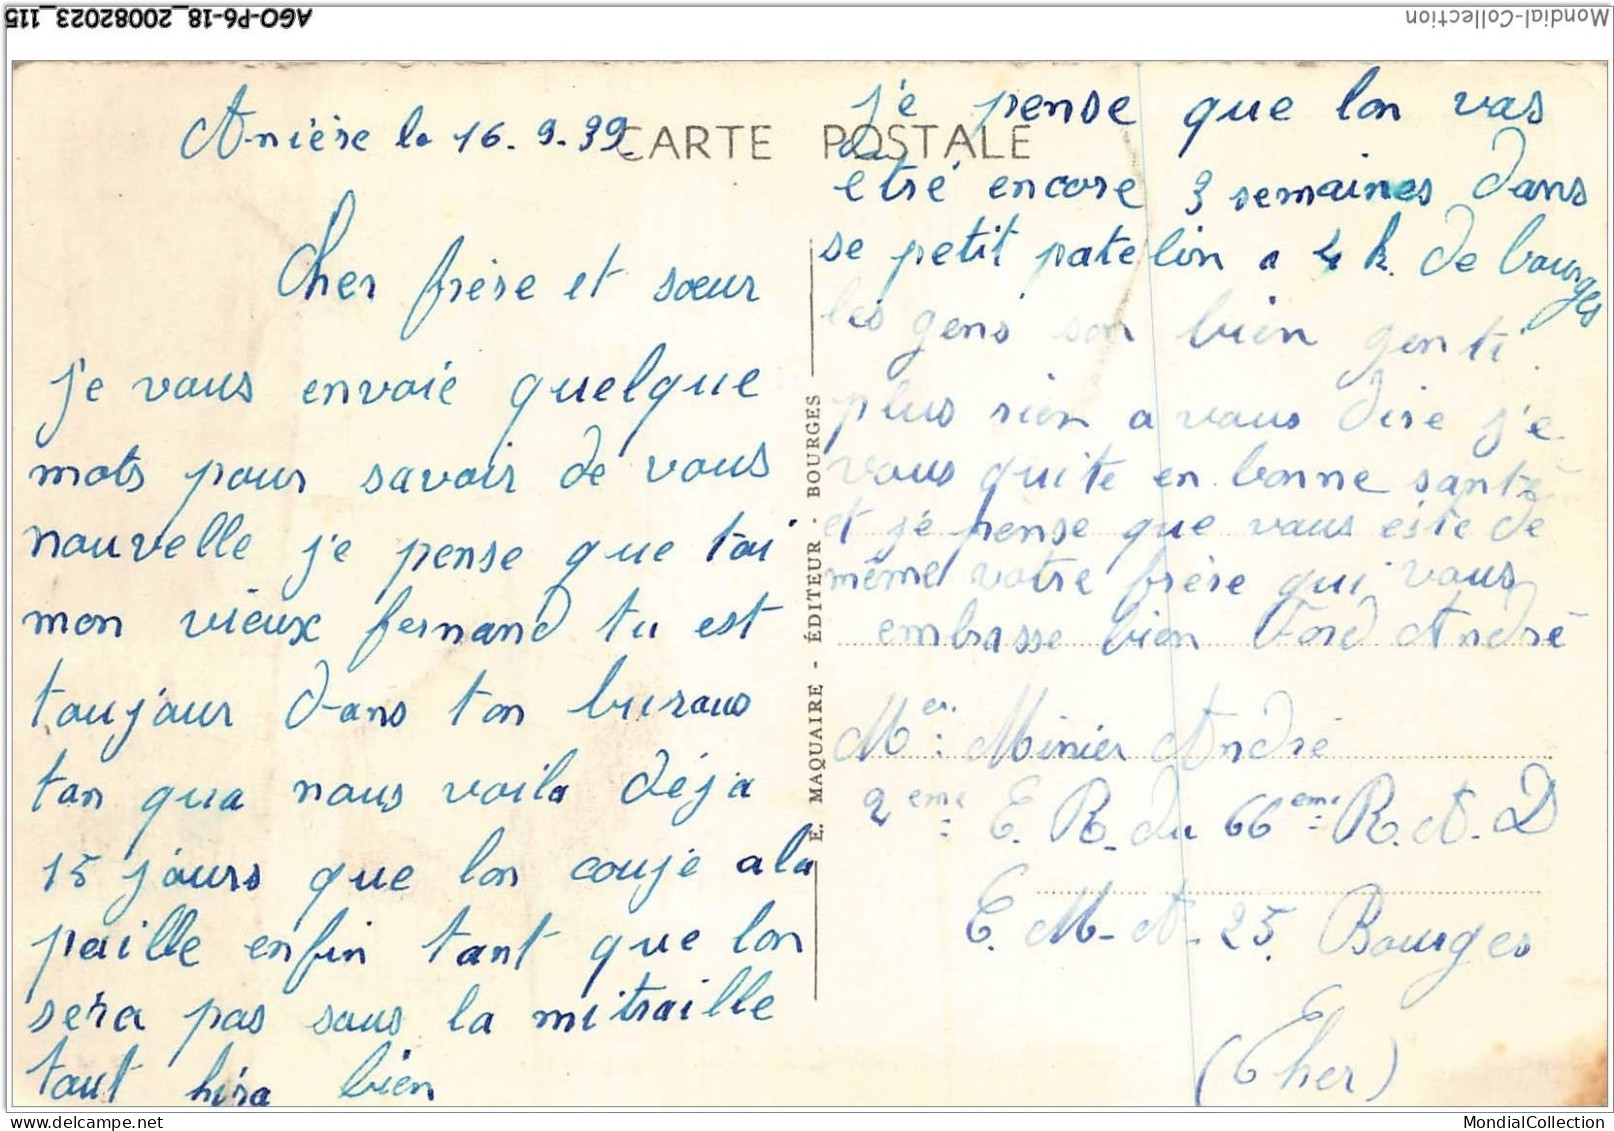 AGO-P6-18_20082023_115
Mondial-Collection
CARTE POSTALE
Anière le 16. 9. 39
Cher frère et sœur
je vous envoie quelque
mots pour savoir de vous
nouvelle je pense que toi
mon vieux fernand tu est
toujour dans ton buraus
tan qua nous voila déja
15 jours que lon couje a la
paille enfin tant que lon
sera pas sous la mitraille
tout hira bien
E. MAQUAIRE - ÉDITEUR - BOURGES
je pense que lon vas
etré encore 3 semaines dans
se petit patelin a 4 k. de bourges
les gens son bien genti.
plus rien a vous dire je
vous quite en bonne santé
et je pense que vous este de
même votre frère qui vous
embrasse bien Ford André
Mer: Minier André
2eme: E. R. du 66eme: R. A. D
E. M. A. 25. Bourges
(Cher)
MondialCollection